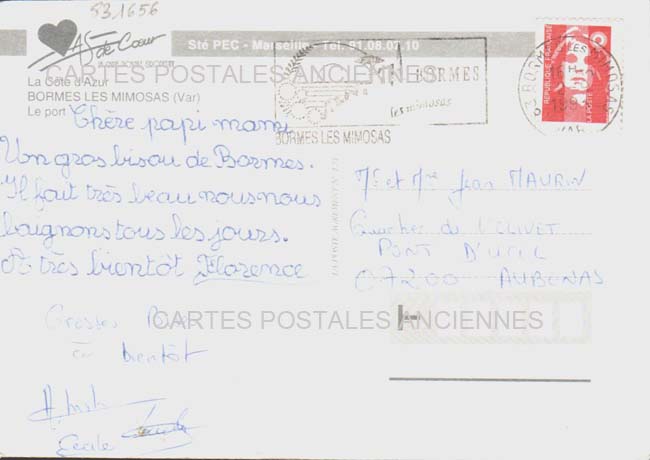 531656
AS de Cœur
Sté PEC - Marseille - Tél. 91.08.07.10
CARTES POSTALES ANCIENNES
La Côte d'Azur
BORMES LES MIMOSAS (Var)
Le port
BORMES
les mimosas
BORMES LES MIMOSAS
REPUBLIQUE FRANÇAISE
Chère papi mami
Un gros bisou de Bormes.
Il fait très beau nous nous
baignons tous les jours.
A très bientôt Florence
Mr et Mme Jean MAURIN
Quartier de l'OLIVET
PONT D'UCEL
07200 AUBENAS
CARTES POSTALES ANCIENNES
Grosses
bientôt
Cécile